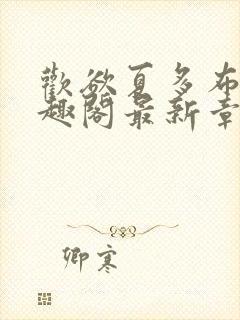 歡欲夏多布
趣閣最新章
卿寒